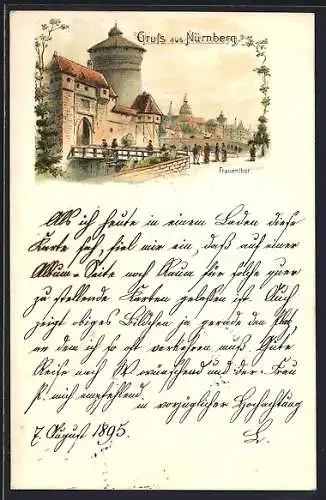 Gruß aus Nürnberg.
Frauenthor
Als ich heute in einem Laden diese
Karte sah, fiel mir ein, daß auf einer
Album-Seite noch Raum für solche quer
zu stellende Karten gelassen ist. Auch
zeigt obiges Bildchen ja gerade den Platz,
an dem ich so oft verkehren muß. Gute
Reise nach W. wünschend und der Frau
P. mich empfehlend
in vorzüglicher Hochachtung
7. August 1895. L.